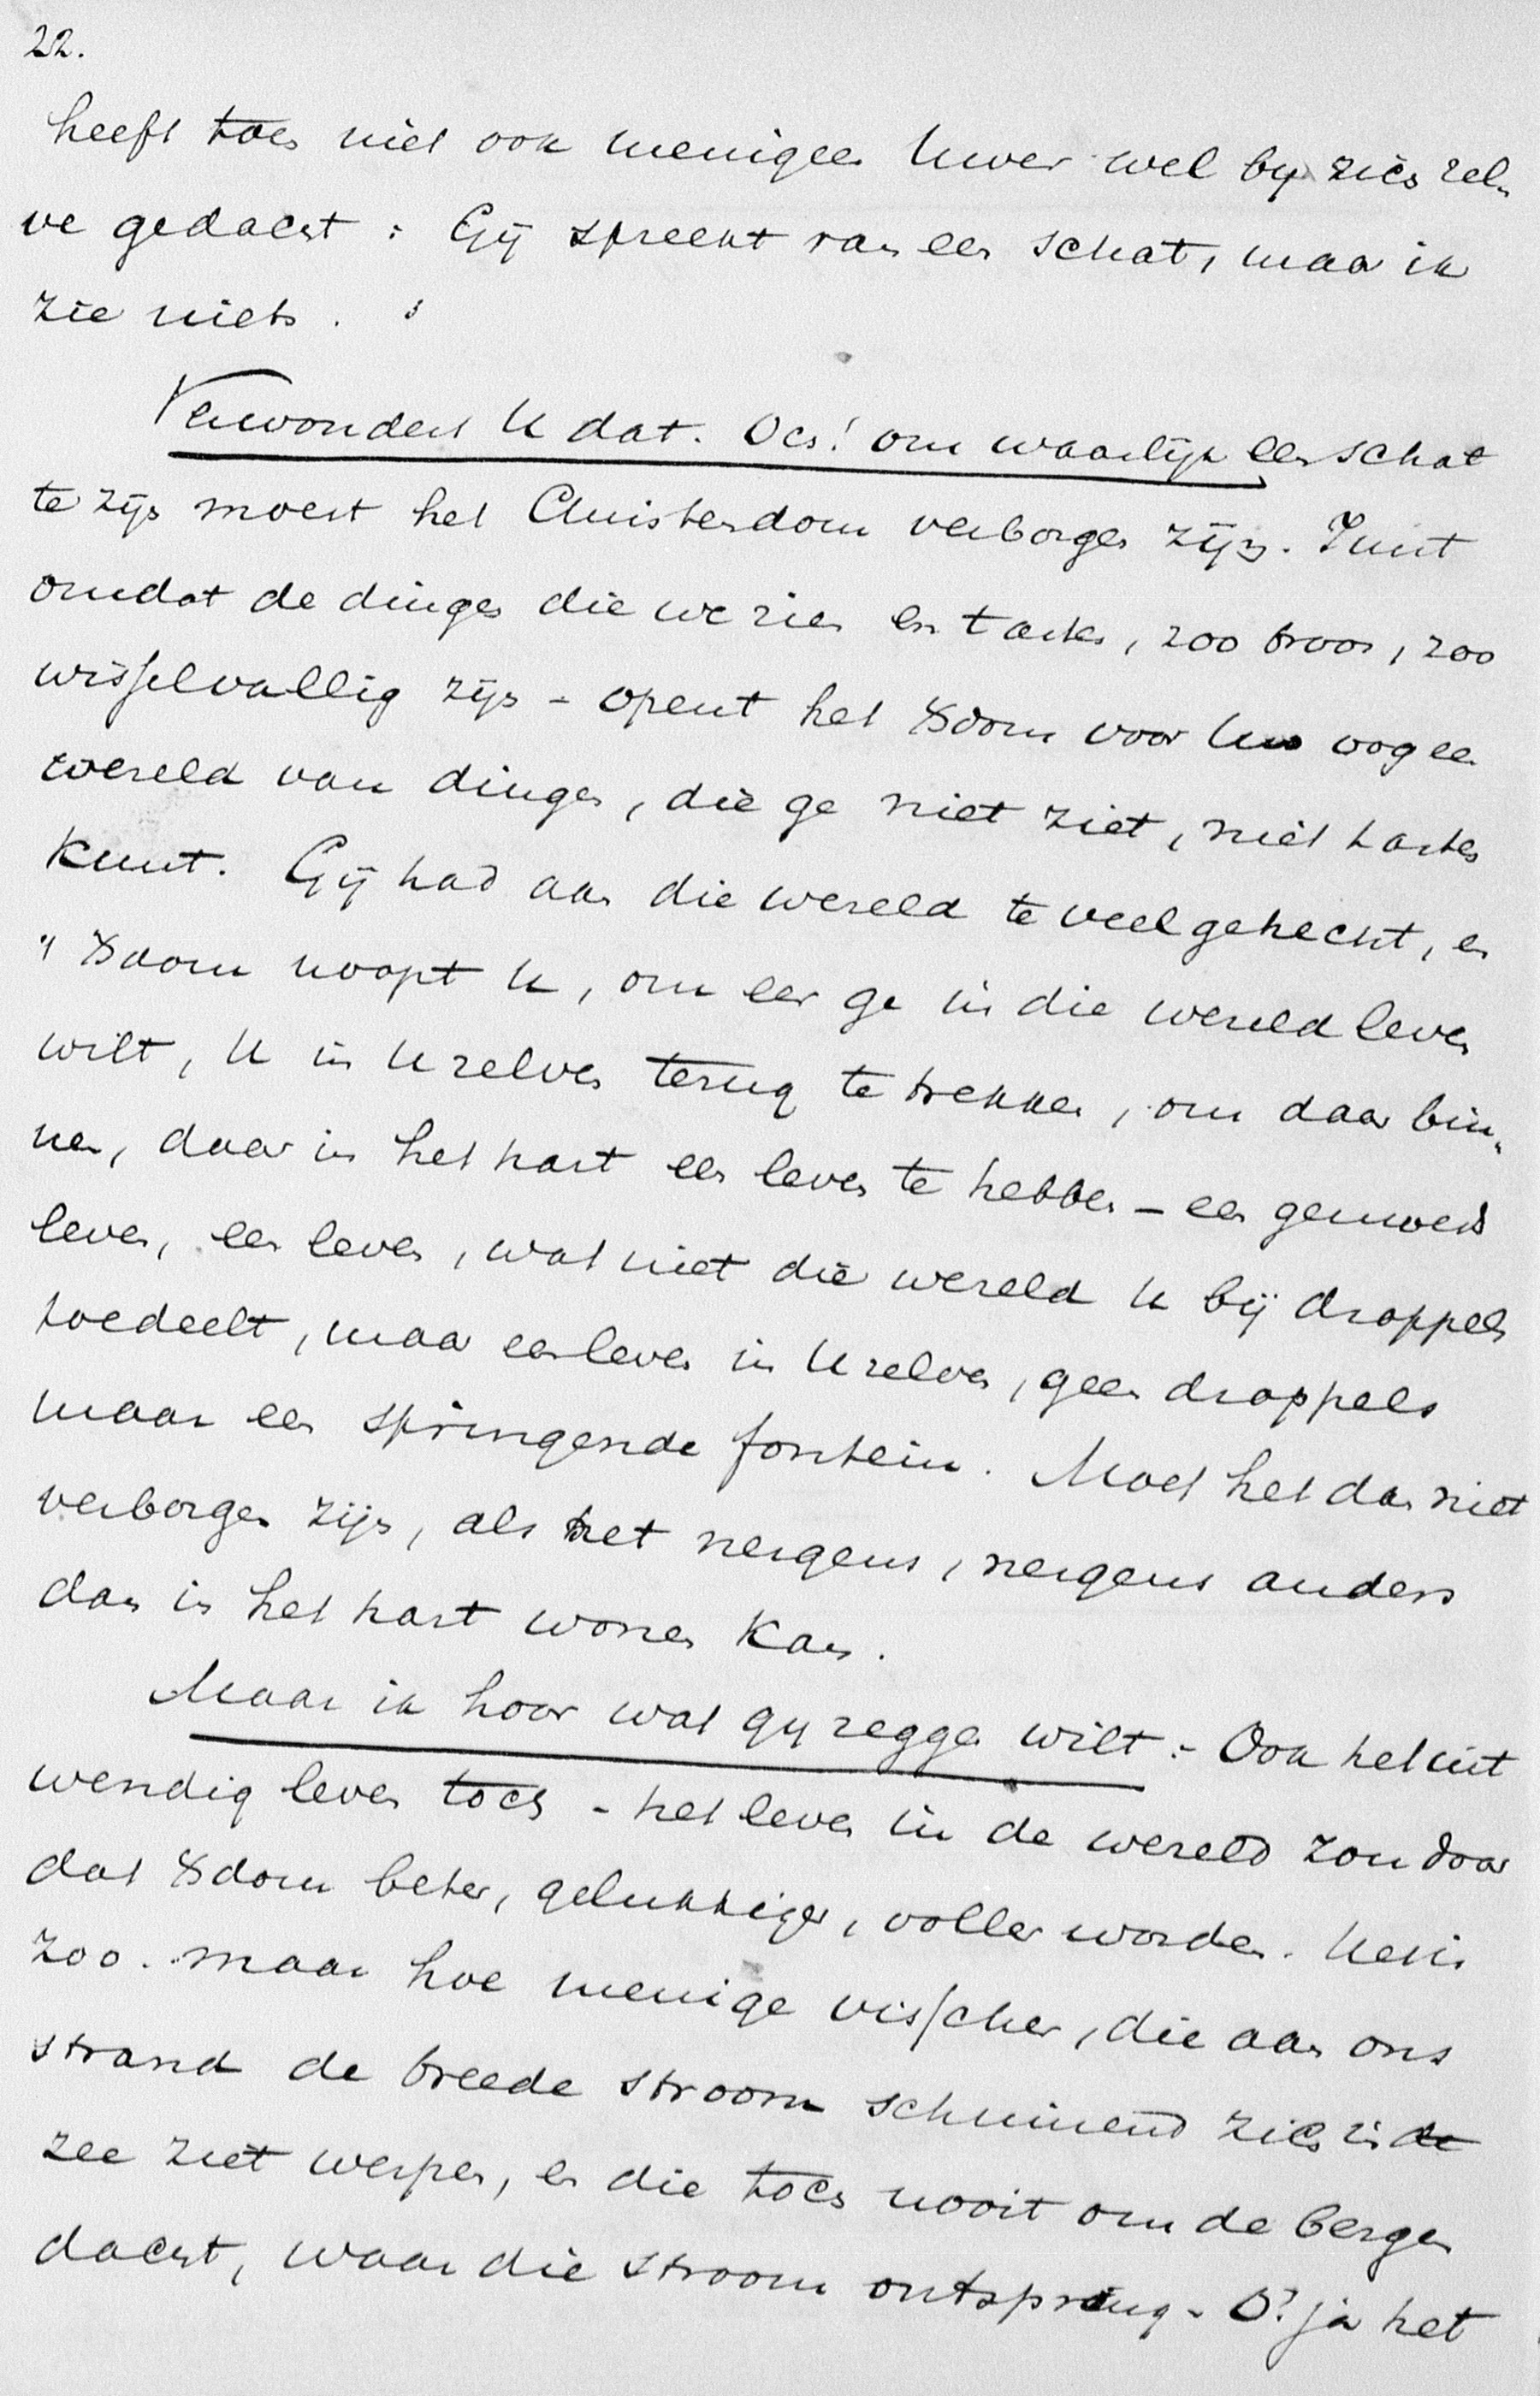 22.
heeft toch niet ook menigeen Uwer wel by zich zel„
ve gedacht : Gij spreekt van een schat, maar ik
zie niets .
Verwondert U dat. Och! om waarlijk een schat
te zijn moest het Christendom verborgen zijn. Juist
omdat de dingen die we zien en tasten, zoo broos, zoo
wisselvallig zijn - opent het Xdom voor Uw oog een
wereld van dingen, die ge niet ziet, niet tasten
kunt. Gij had aan die wereld te veel gehecht, en
't Xdom noopt U, om eer ge in die wereld leven
wilt, U in Uzelven terug te trekken, om daar bin„
nen, daar in het hart een leven te hebben - een gemoeds
leven, een leven, wat niet die wereld U bij droppels
toedeelt, maar een leven in Uzelven, geen droppels
maar een springende fontein. Moet het dan niet
verborgen zijn, als het nergens, nergens anders
dan in het hart wonen kan.
Maar ik hoor wat gy zeggen wilt :- Ook het uit
wendig leven toch - het leven in de wereld zou door
dat Xdom beter, gelukkiger, voller worden. Het is
zoo. maar hoe menige visscher, die aan ons
strand de breede stroom schuimend zich in de
zee ziet werpen, en die toch nooit om de bergen
dacht, waar die stroom ontsprong - O! ja het